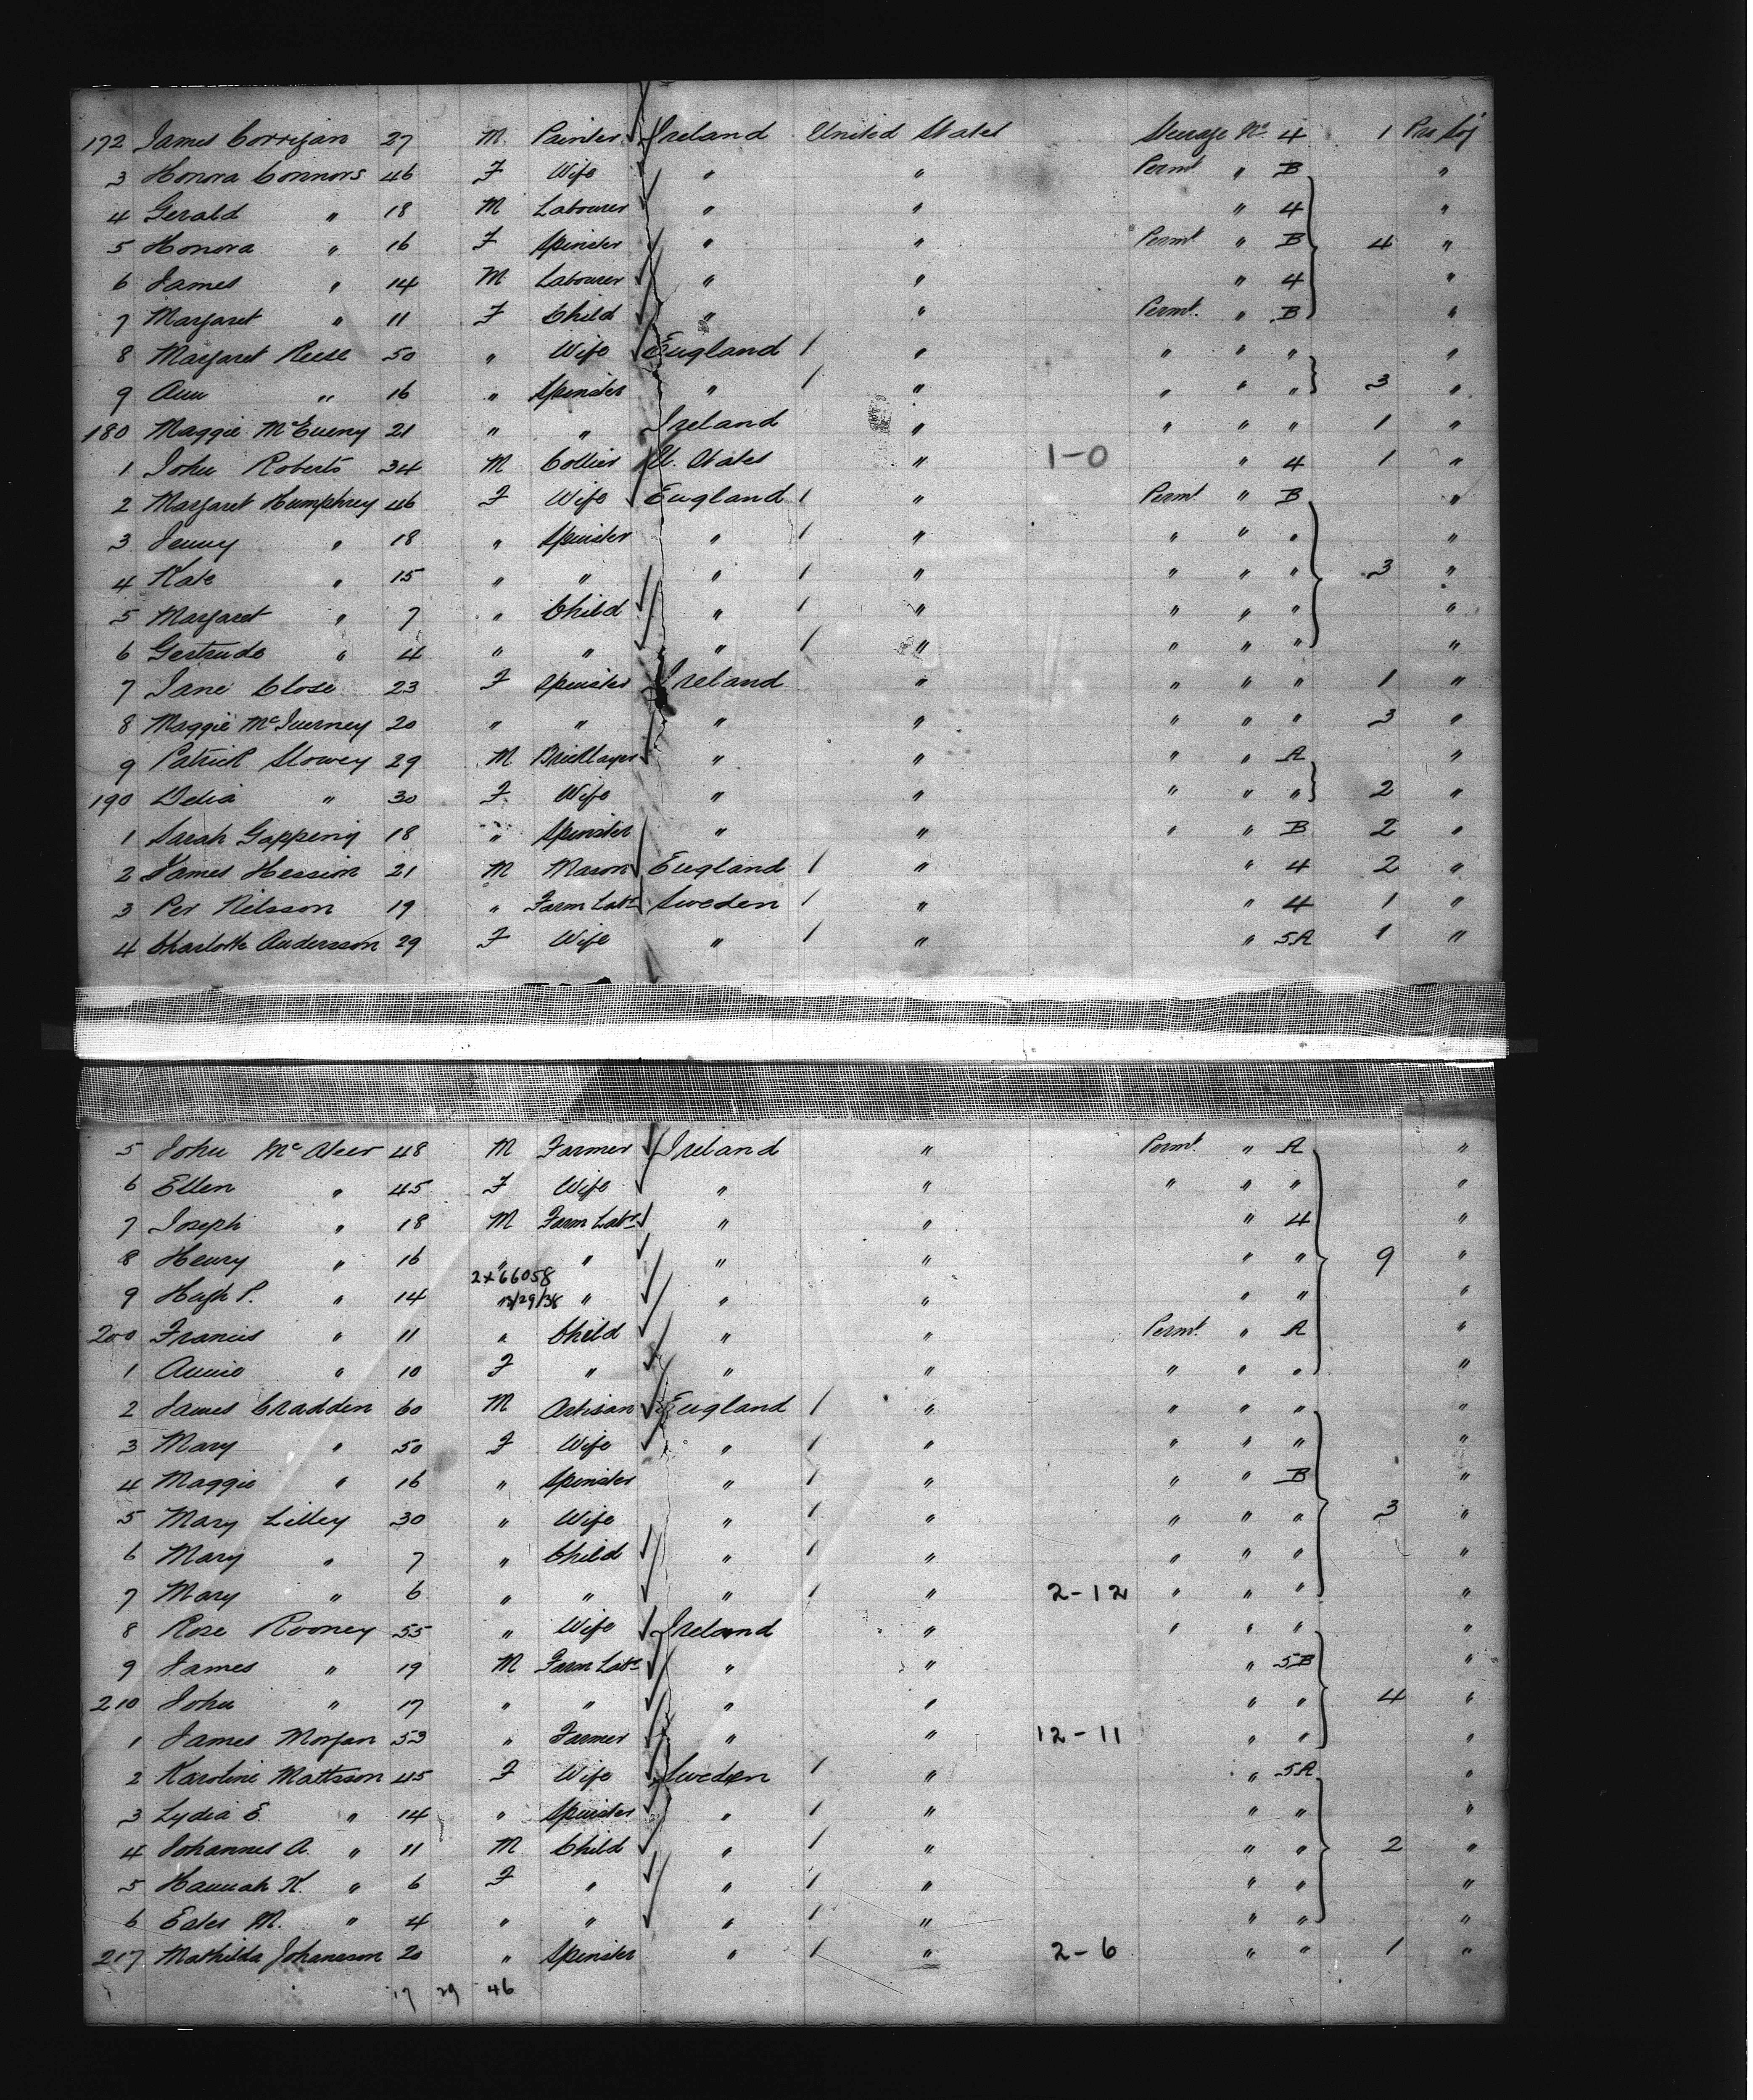 172 James Corrigan 27 M. Painter Ireland United States Steerage No. 4 1 Pro Soj
3 Honora Connors 46 F Wife " " Permt " B "
4 Gerald " 18 M Labourer " " " 4 "
5 Honora " 16 F Spinster " " Permt " B 4 "
6 James " 14 M Labourer " " " 4 "
7 Margaret " 11 F Child " " Permt. " B "
8 Margaret Reese 50 " Wife England / " " " " "
9 Ann " 16 " Spinster " / " " " " 3 "
180 Maggie McEueny 21 " " Ireland " " " " 1 "
1 John Roberts 34 M Collier U. States " 1-0 " 4 1 "
2 Margaret Humphrey 46 F Wife England / " Permt. " B "
3 Jenny " 18 " Spinster " / " " " " "
4 Kate " 15 " " " / " " " " 3 "
5 Margaret " 7 " Child " / " " " " "
6 Gertrude " 4 " " " / " " " " "
7 Jane Close 23 F Spinster Ireland " " " " 1 "
8 Maggie McInerney 20 " " " " " " " 3 "
9 Patrick Slowey 29 M Bricklayer " " " " A "
190 Delia " 30 F Wife " " " " " 2 "
1 Sarah Gappeny 18 " Spinster " " " " B 2 "
2 James Hession 21 M Mason England / " " 4 2 "
3 Per Nilsson 19 " Farm Labr Sweden / " " 4 1 "
4 Charlotte Andersson 29 F Wife " / " " 5A 1 "
5 John McAleer 48 M Farmer Ireland " Permt. " A "
6 Ellen " 45 F Wife " " " " " "
7 Joseph " 18 M Farm Labr " " " 4 "
8 Henry " 16 " " " " " " 9 "
2x66058
9 Hugh P. " 14 " " " " " "
200 Francis " 11 " Child " " Permt. " A "
1 Annie " 10 F " " " " " " "
2 James Cradden 60 M Artisan England / " " " " "
3 Mary " 50 F Wife " / " " " " "
4 Maggie " 16 " Spinster " / " " " B "
5 Mary Lilley 30 " Wife " / " " " " 3 "
6 Mary " 7 " Child " / " " " " "
7 Mary " 6 " " " / " 2-12 " " " "
8 Rose Rooney 55 " Wife Ireland " " " " "
9 James " 19 M Farm Labr " " " 5B "
210 John " 17 " " " " " " 4 "
1 James Morgan 53 " Farmer " " 12-11 " " "
2 Karoline Mattsson 45 F Wife Sweden / " " 5A "
3 Lydia E. " 14 " Spinster " / " " " "
4 Johannes A. " 11 M Child " / " " " 2 "
5 Hannah K. " 6 F " " / " " " "
6 Eales M. " 4 " " " / " " " "
217 Mathilda Johaneson 20 " Spinster " / " 2-6 " " 1 "
17 29 46